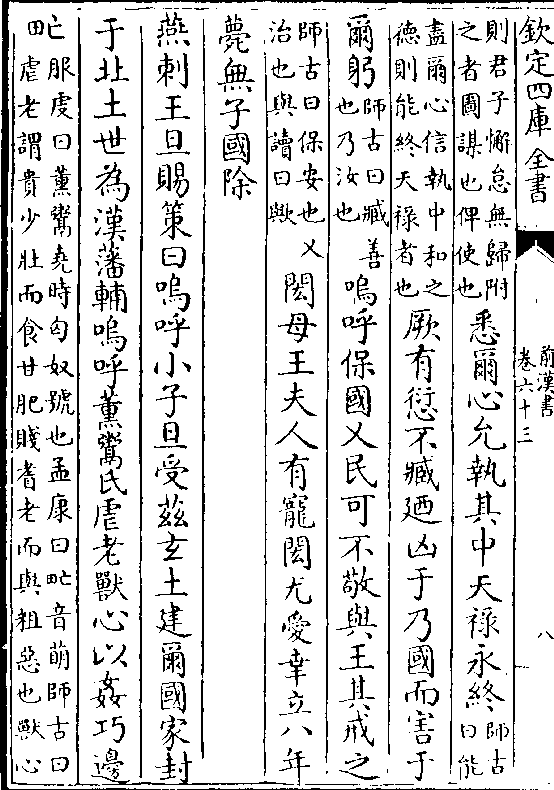 欽定四庫全書
前漢書
卷六十三
八
則君子懈怠無歸附
之者圖謀也俾使也
悉爾心允執其中天祿永終
師古
曰能
盡爾心信執中和之
德則能終天祿者也
厥有愆不臧廼凶于乃國而害于
爾躬
師古曰臧善
也乃汝也
嗚呼保國乂民可不敬與王其戒之
師古曰保安也乂
治也與讀曰歟
閎母王夫人有寵閎尤愛幸立八年
薨無子國除
燕刺王旦賜策曰嗚呼小子旦受茲玄土建爾國家封
于北土世為漢藩輔嗚呼薰鬻氏虐老獸心以姦巧邊
甿
服虔曰薰鬻堯時匈奴號也孟康曰甿音萌師古曰
虐老謂貴少壯而食甘肥賤耆老而與粗惡也獸心